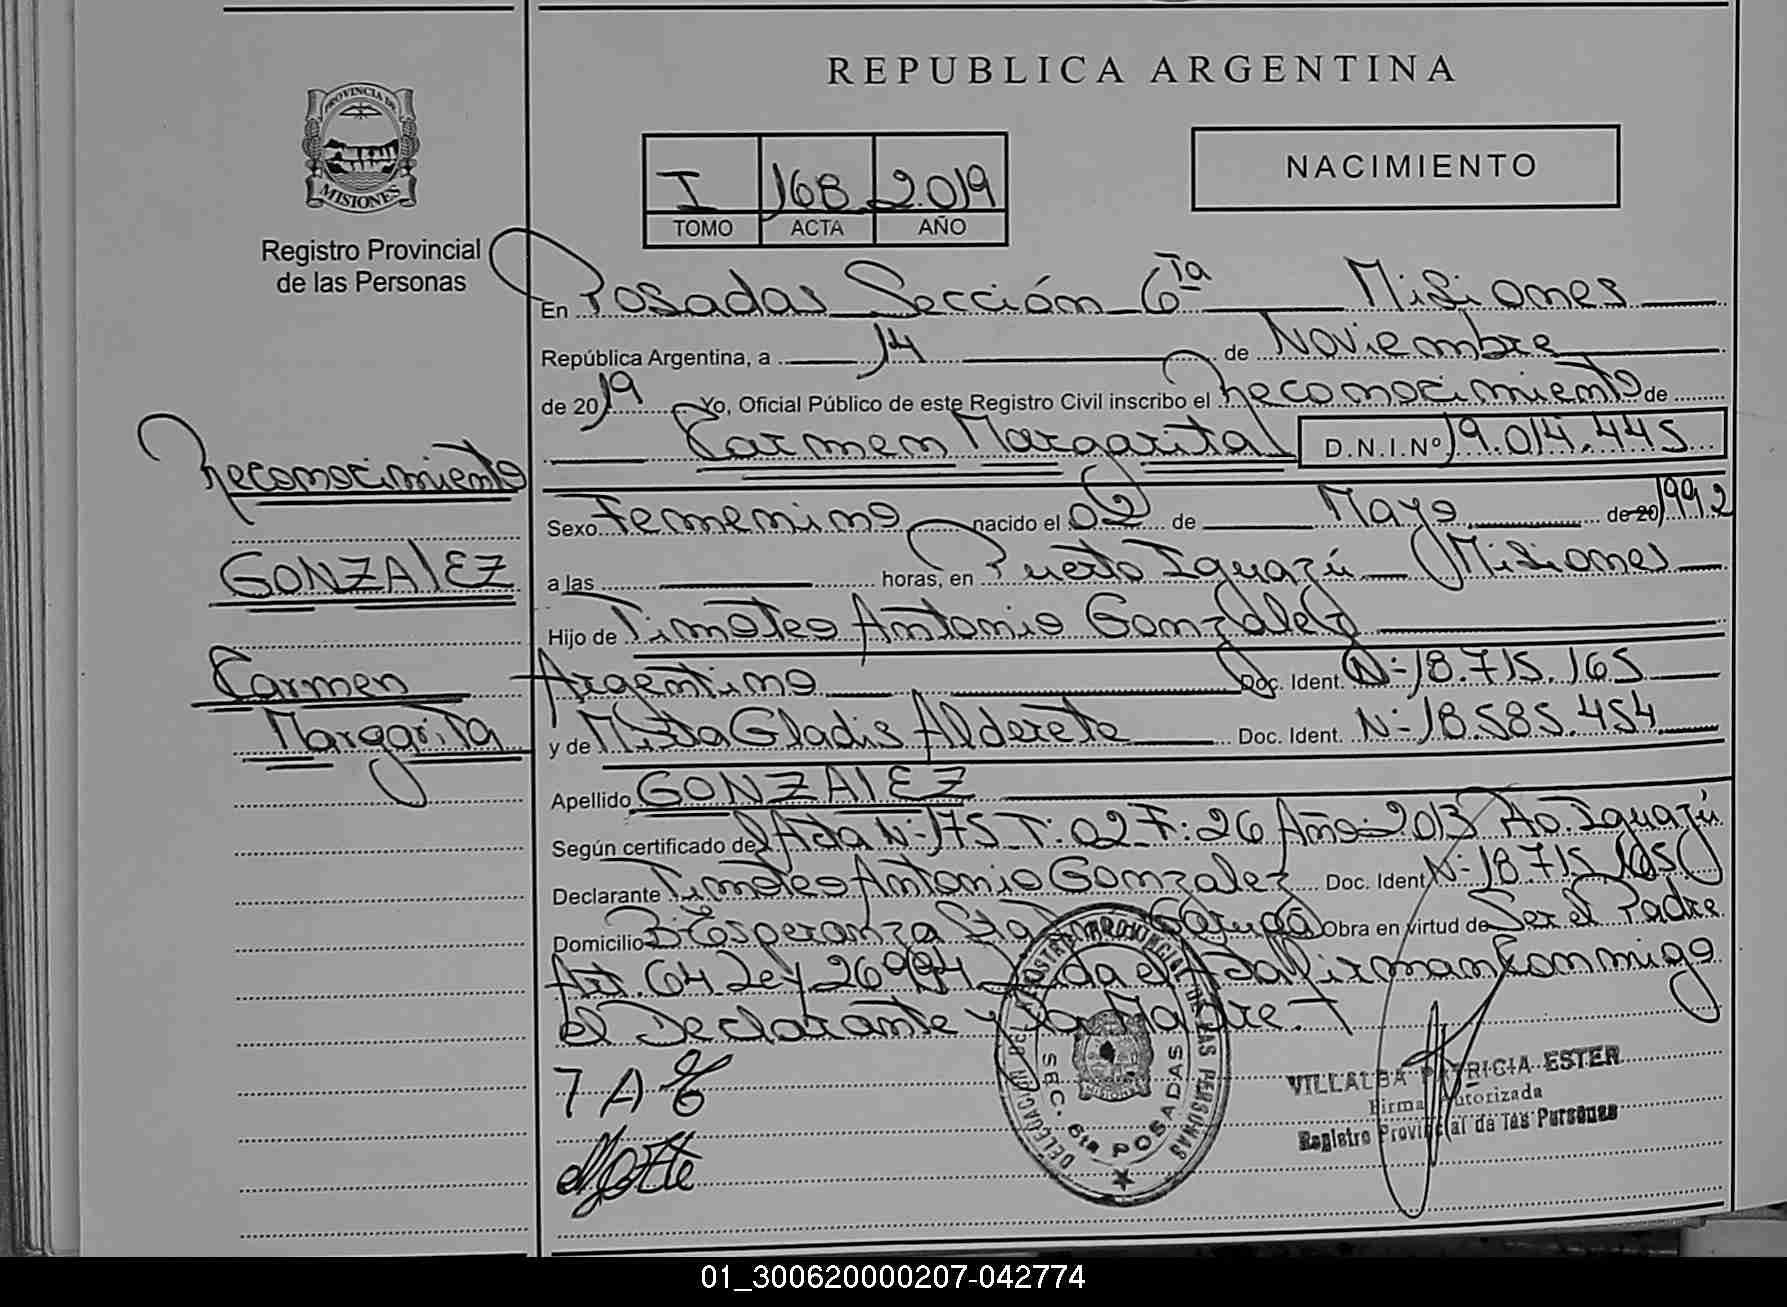 REPUBLICA ARGENTINA
PROVINCIA DE
MISIONES
Registro Provincial
de las Personas
I 168 2.019
TOMO ACTA AÑO
NACIMIENTO
En Posadas Sección 6ta Misiones
República Argentina, a 14 de Noviembre
de 2019 Yo, Oficial Público de este Registro Civil inscribo el Reconocimiento de
Carmen Margarita D.N.I.Nº 19.014.445
Sexo Femenino nacido el 02 de Mayo de 20 1992
a las horas, en Puerto Iguazú Misiones
Hijo de Timoteo Antonio González
Argentino Doc. Ident. Nº 18.715.165
y de Mirta Gladis Alderete Doc. Ident. Nº 18.585.454
Apellido GONZALEZ
Según certificado del Acta Nº 175 T: 02 F: 26 Año 2013 Pto. Iguazú
Declarante Timoteo Antonio Gonzalez Doc. Ident Nº 18.715.165
Domicilio Bº Esperanza Obra en virtud de Ser el Padre
Art. 64 Ley 26994 Leida el Acta firman conmigo
el Declarante y la Madre.-
T A G
Reconocimiento
GONZALEZ
Carmen
Margarita
DELEGACION DEL REGISTRO PROVINCIAL DE LAS PERSONAS
SEC. 6ta POSADAS
VILLALBA PATRICIA ESTER
Firma Autorizada
Registro Provincial de las Personas
01_300620000207-042774